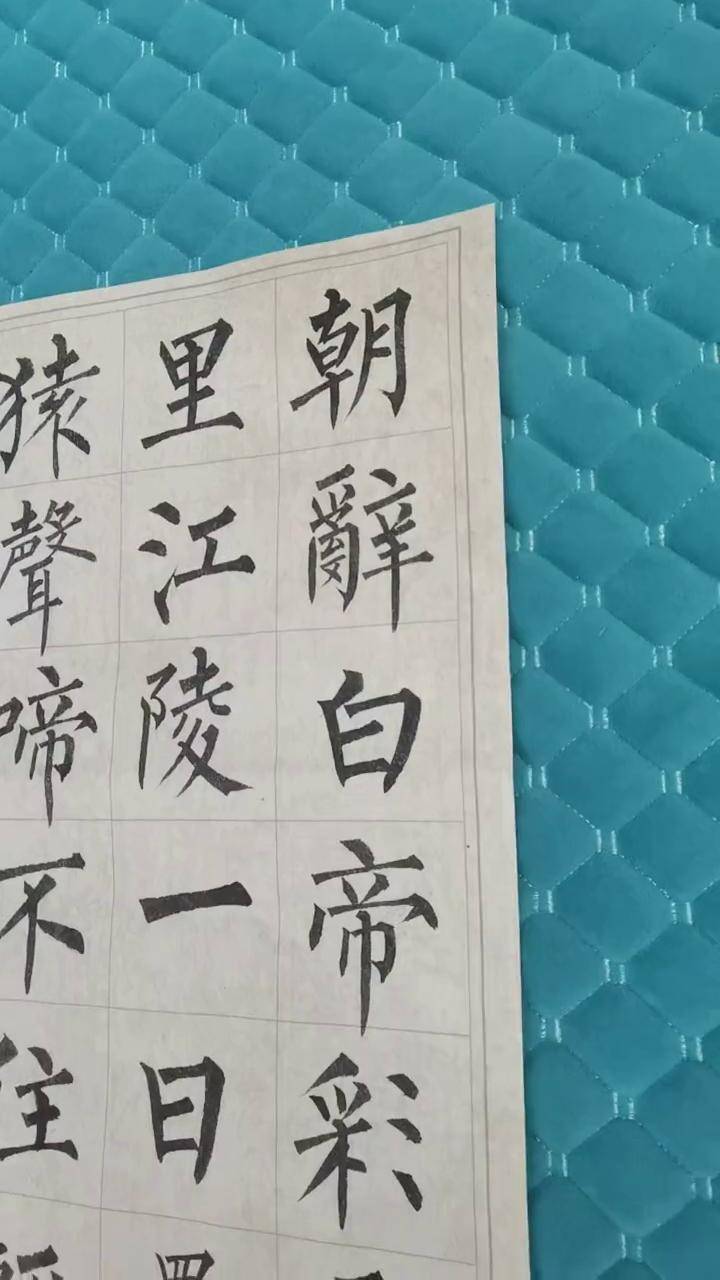 朝辭白帝彩
里江陵一日
猿聲啼不住